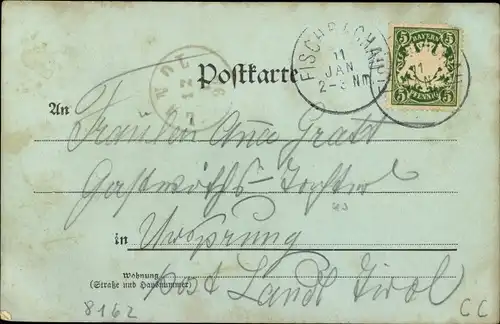 Postkarte
11
JAN
2-3 NM
BAYERN
5 5
PFENNIG
5 5
An Fräulen Anna Gratt
Gastwirths-Tochter
in Ursprung
Wohnung
(Straße und Hausnummer)
post Landl Tirol
8162
CC